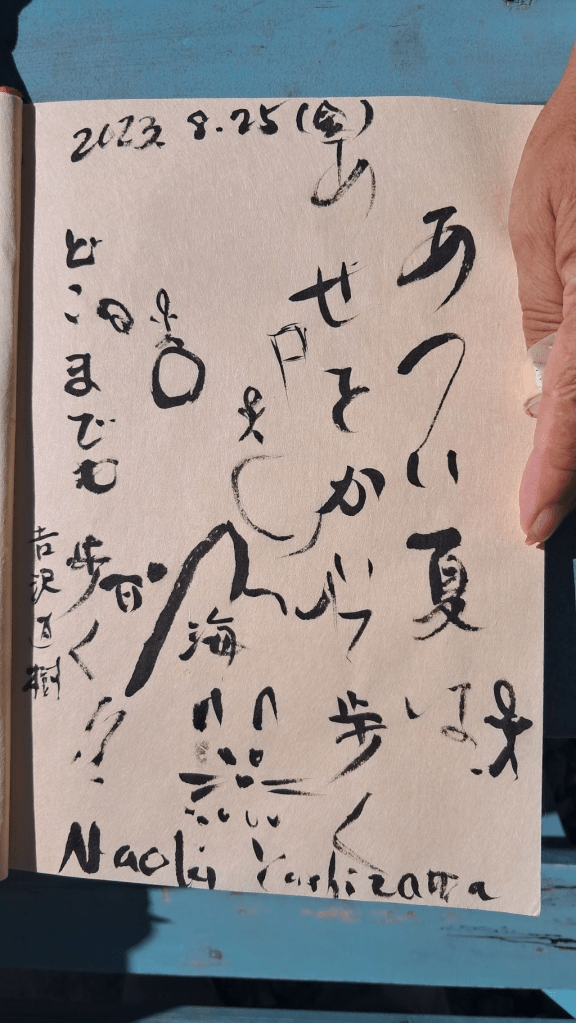 2023. 8.25 (金)
あつい夏は
あせをか
歩く
海
どこまでも
歩く
吉沢直樹
Naoki Yoshizawa